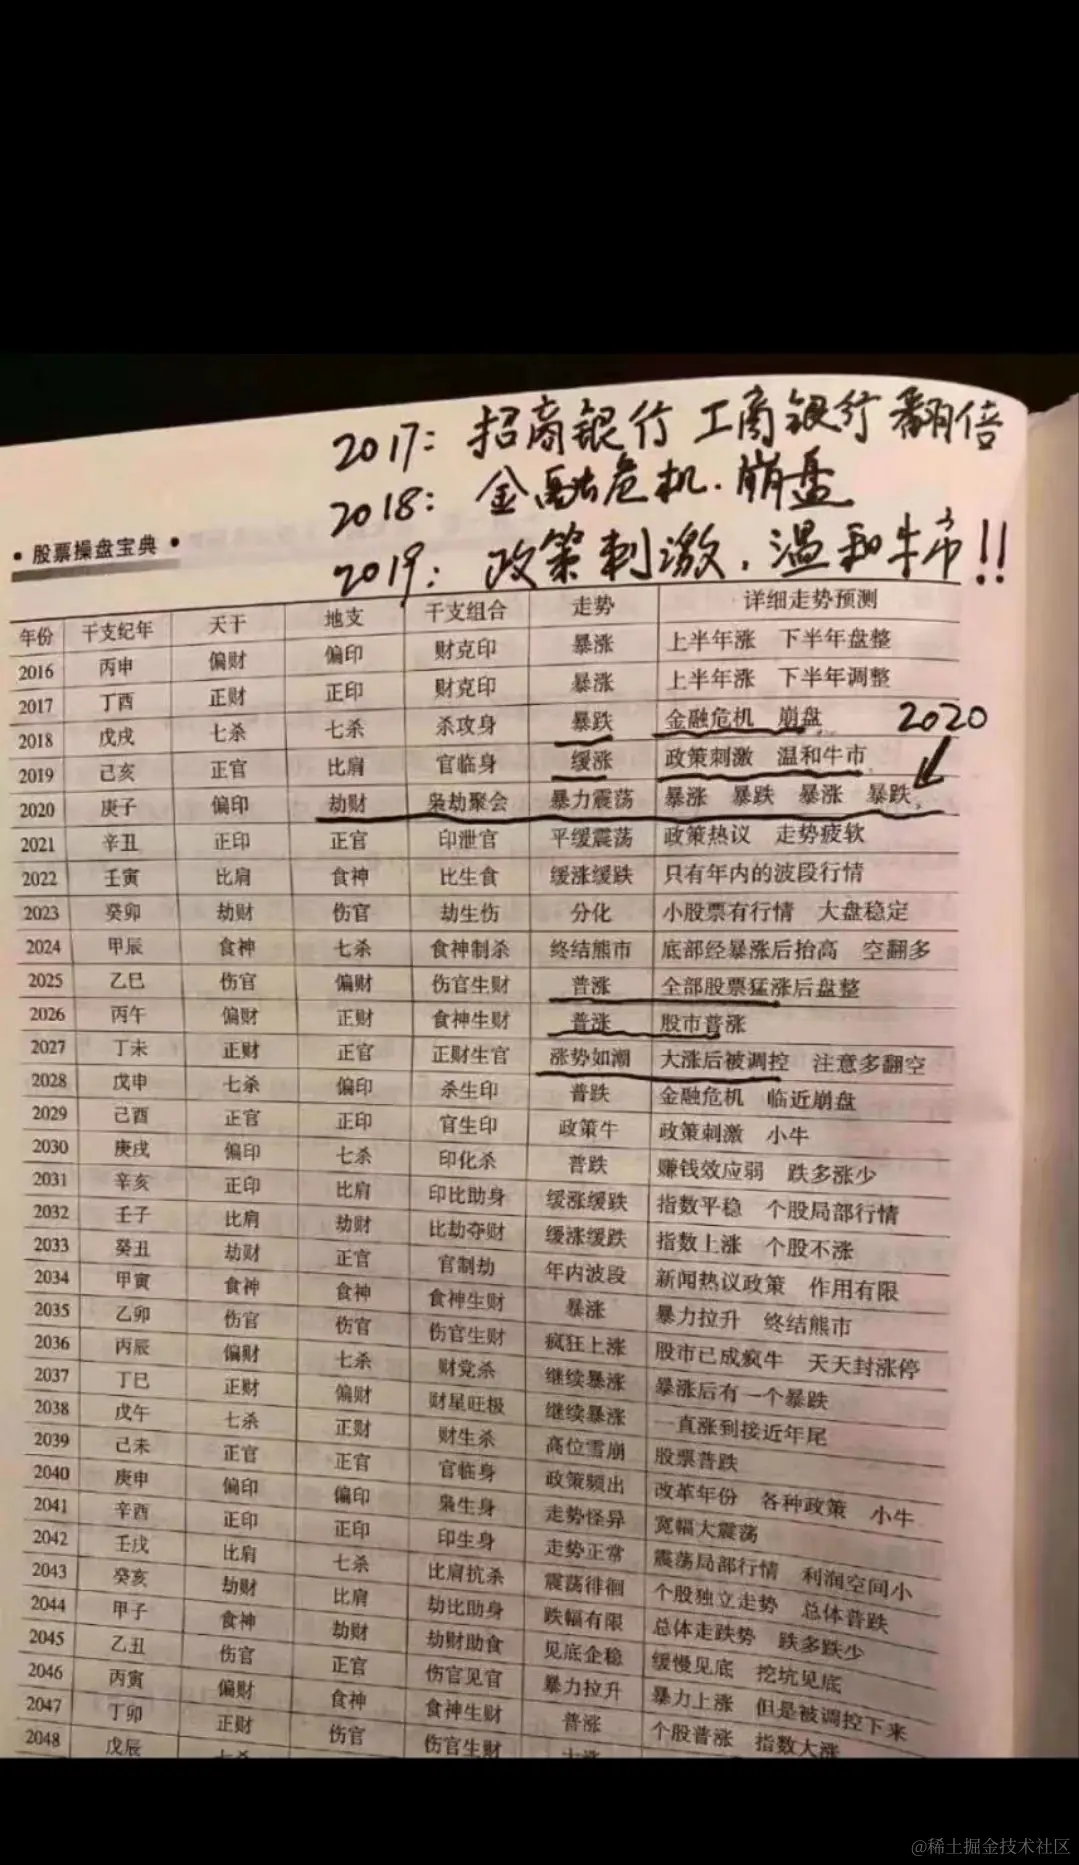 2017: 招商银行 工商银行 翻倍
2018: 金融危机.崩盘
2019: 政策刺激,温和牛市!!
• 股票操盘宝典 •
年份 干支纪年 天干 地支 干支组合 走势 详细走势预测
2016 丙申 偏财 偏印 财克印 暴涨 上半年涨 下半年盘整
2017 丁酉 正财 正印 财克印 暴涨 上半年涨 下半年调整
2018 戊戌 七杀 七杀 杀攻身 暴跌 金融危机 崩盘
2020
2019 己亥 正官 比肩 官临身 缓涨 政策刺激 温和牛市
2020 庚子 偏印 劫财 枭劫聚会 暴力震荡 暴涨 暴跌 暴涨 暴跌
2021 辛丑 正印 正官 印泄官 平缓震荡 政策热议 走势疲软
2022 壬寅 比肩 食神 比生食 缓涨缓跌 只有年内的波段行情
2023 癸卯 劫财 伤官 劫生伤 分化 小股票有行情 大盘稳定
2024 甲辰 食神 七杀 食神制杀 终结熊市 底部经暴涨后抬高 空翻多
2025 乙巳 伤官 偏财 伤官生财 普涨 全部股票猛涨后盘整
2026 丙午 偏财 正财 食神生财 普涨 股市普涨
2027 丁未 正财 正官 正财生官 涨势如潮 大涨后被调控 注意多翻空
2028 戊申 七杀 偏印 杀生印 普跌 金融危机 临近崩盘
2029 己酉 正官 正印 官生印 政策牛 政策刺激 小牛
2030 庚戌 偏印 七杀 印化杀 普跌 赚钱效应弱 跌多涨少
2031 辛亥 正印 比肩 印比助身 缓涨缓跌 指数平稳 个股局部行情
2032 壬子 比肩 劫财 比劫夺财 缓涨缓跌 指数上涨 个股不涨
2033 癸丑 劫财 正官 官制劫 年内波段 新闻热议政策 作用有限
2034 甲寅 食神 食神 食神生财 暴涨 暴力拉升 终结熊市
2035 乙卯 伤官 伤官 伤官生财 疯狂上涨 股市已成疯牛 天天封涨停
2036 丙辰 偏财 七杀 财党杀 继续暴涨 暴涨后有一个暴跌
2037 丁巳 正财 偏财 财星旺极 继续暴涨 一直涨到接近年尾
2038 戊午 七杀 正财 财生杀 高位雪崩 股票普跌
2039 己未 正官 正官 官临身 政策频出 改革年份 各种政策 小牛
2040 庚申 偏印 偏印 枭生身 走势怪异 宽幅大震荡
2041 辛酉 正印 正印 印生身 走势正常 震荡局部行情 利润空间小
2042 壬戌 比肩 七杀 比肩抗杀 震荡徘徊 个股独立走势 总体普跌
2043 癸亥 劫财 比肩 劫比助身 跌幅有限 总体走跌势 跌多跌少
2044 甲子 食神 劫财 劫财助食 见底企稳 缓慢见底 挖坑见底
2045 乙丑 伤官 正官 伤官见官 暴力拉升 暴力上涨 但是被调控下来
2046 丙寅 偏财 食神 食神生财 普涨 个股普涨 指数大涨
2047 丁卯 正财 伤官 伤官生财
2048 戊辰
@稀土掘金技术社区